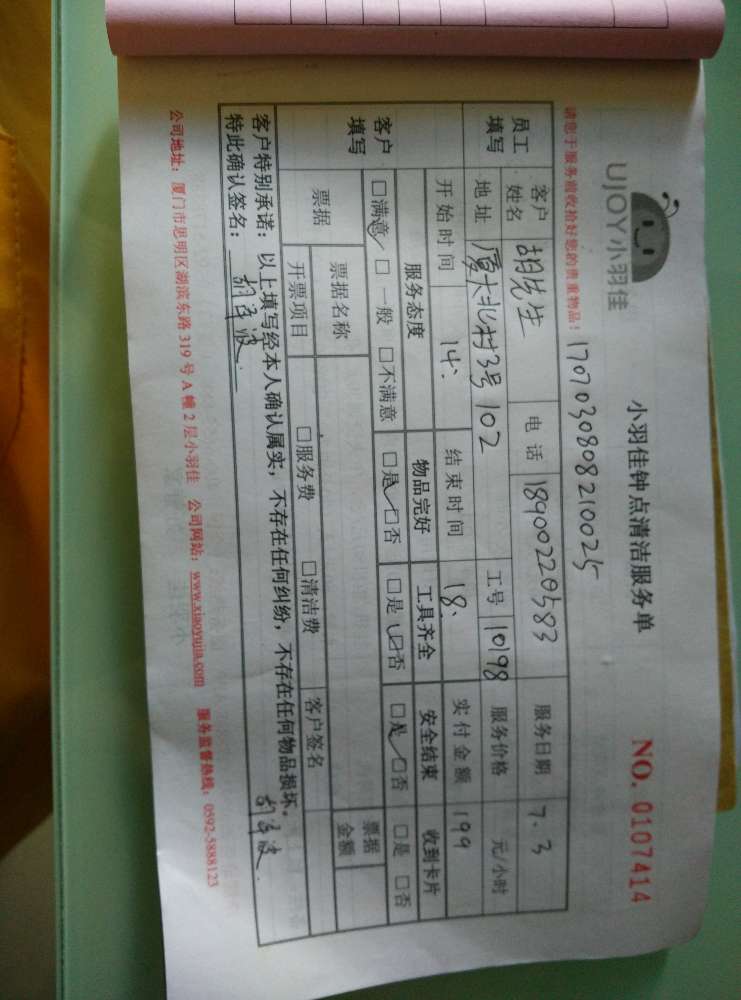 UJOY小羽佳
小羽佳钟点清洁服务单
NO. 0107414
请您于服务前收拾好您的贵重物品!
1707030808210025
员工填写 客户姓名 胡先生 电话 18900220583 服务日期 7.3
地址 厦大北村3号102 工号 10198 服务价格 元/小时
开始时间 14: 结束时间 18: 实付金额 199
客户填写 服务态度 物品完好 工具齐全 安全结束 收到卡片
□满意✓ □一般 □不满意 □是✓ □否 □是 ☑否 □是✓ □否 □是 □否
票据 票据名称 票据金额
开票项目 □服务费 □清洁费 客户签名
客户特别承诺:以上填写经本人确认属实,不存在任何纠纷,不存在任何物品损坏。
特此确认签名:
公司地址:厦门市思明区湖滨东路319号A幢2层小羽佳 公司网站:www.xiaoyujia.com 服务监督热线:0592-5888123